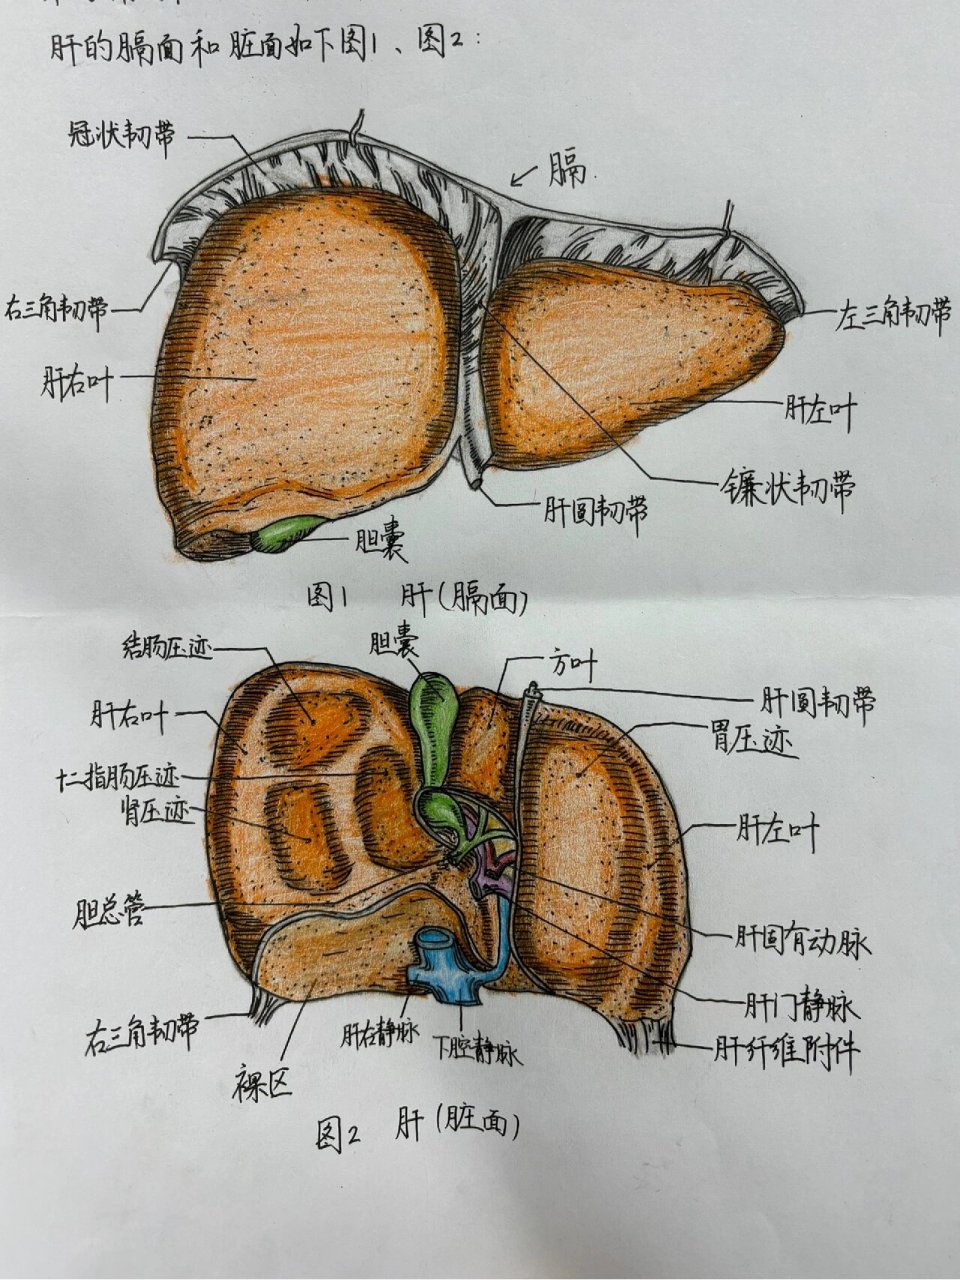 肝的膈面和脏面如下图1、图2:
冠状韧带
膈
右三角韧带
左三角韧带
肝右叶
肝左叶
镰状韧带
肝圆韧带
胆囊
图1 肝(膈面)
胆囊
结肠压迹
方叶
肝圆韧带
肝右叶
胃压迹
十二指肠压迹
肾压迹
肝左叶
胆总管
肝固有动脉
肝门静脉
右三角韧带
肝右静脉
下腔静脉
肝纤维附件
裸区
图2 肝(脏面)